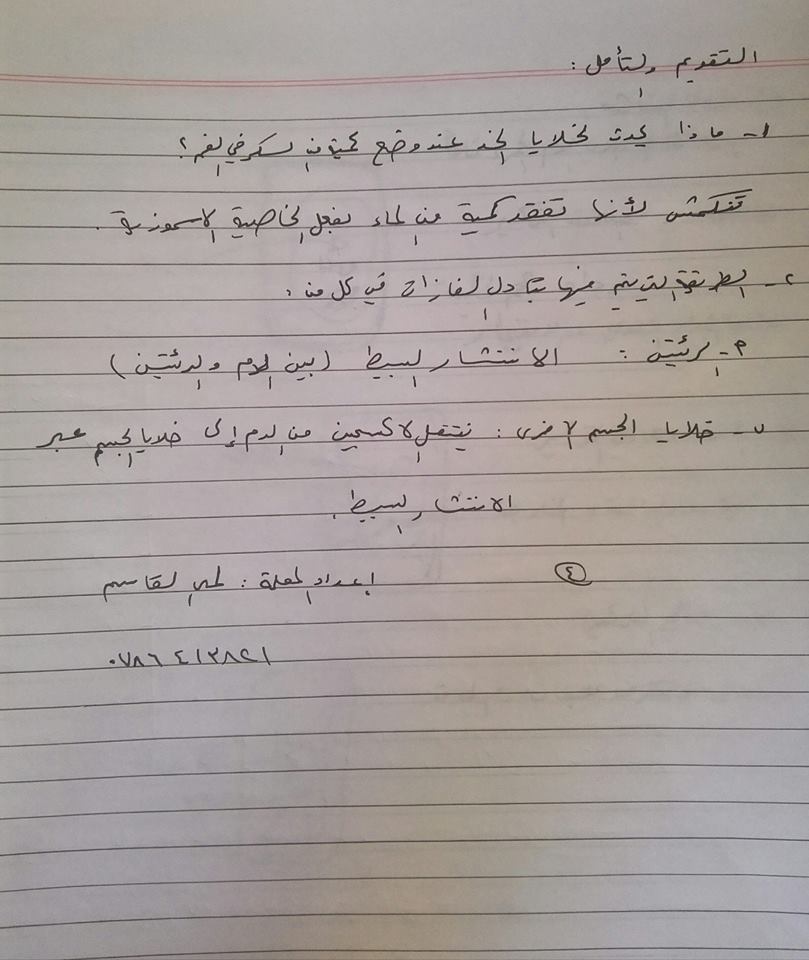 التقويم والتأمل:
١- ماذا يحدث لخلايا الخد عند وضع كمية من السكر في الفم؟
تنكمش لأنها تفقد كمية من الماء بفعل الخاصية الاسموزية.
٢- الطريقة التي يتم فيها تبادل الغازات في كل من:
أ- الرئتين: الانتشار البسيط (بين الدم والرئتين)
ب- خلايا الجسم الأخرى: ينتقل الاكسجين من الدم إلى خلايا الجسم عبر
الانتشار البسيط.
٤ إعداد المعلمة: لمى القاسم
٠٧٨٦٤١٣٨٢١